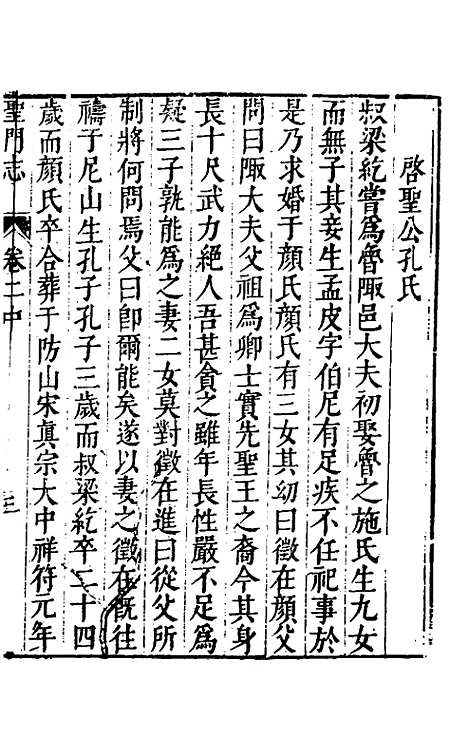 啓聖公孔氏
叔梁紇嘗爲魯陬邑大夫初娶魯之施氏生九女
而無子其妾生孟皮字伯尼有足疾不任祀事於
是乃求婚于顔氏顔氏有三女其幼曰徵在顔父
問曰陬大夫父祖爲卿士實先聖王之裔今其身
長十尺武力絕人吾甚貪之雖年長性嚴不足爲
疑三子孰能爲之妻二女莫對徵在進曰從父所
制將何問焉父曰卽爾能矣遂以妻之徵在旣往
禱于尼山生孔子孔子三歲而叔梁紇卒二十四
歲而顔氏卒合葬于防山宋眞宗大中祥符元年
聖門志 卷二中 三